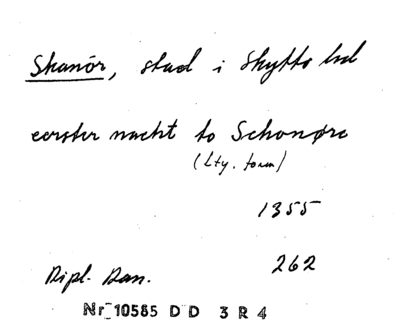 Skanör, stad i Skytts hd
eerster nacht to Schonøre
(Lty. form)
1355
262
Dipl. Dan.
Nr 10585 D D 3 R 4